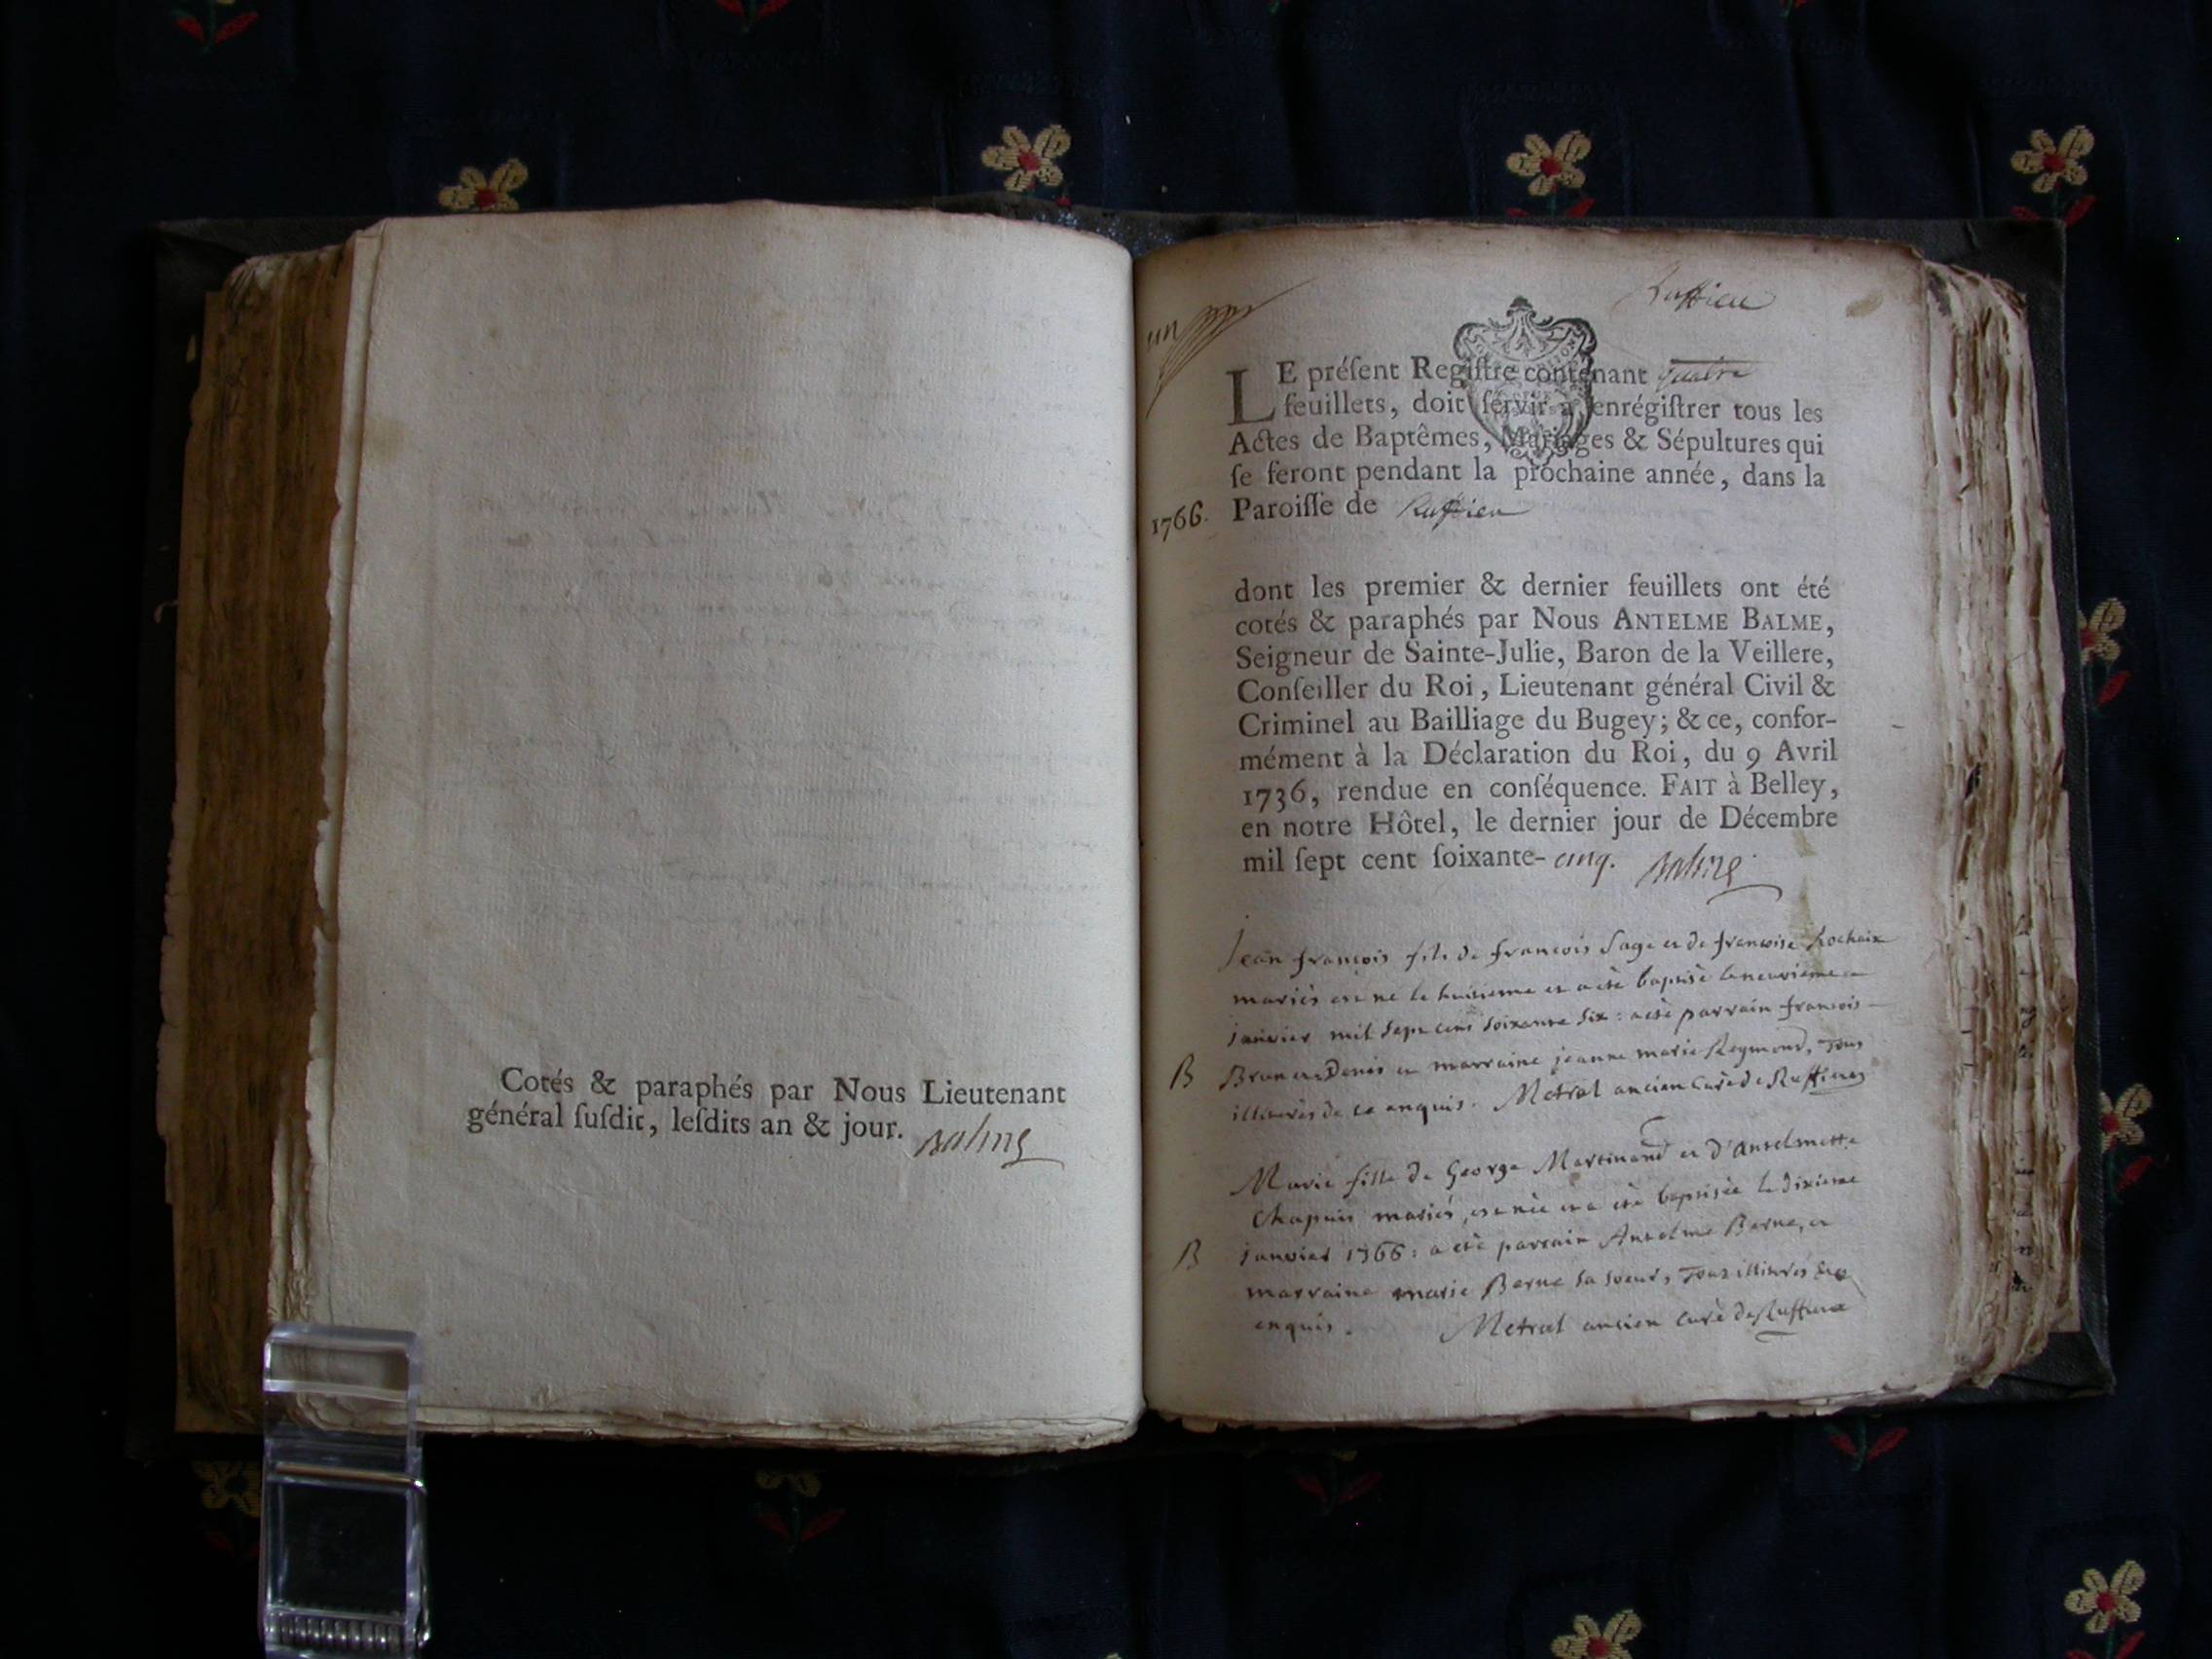 Cotés & paraphés par Nous Lieutenant
général ſuſdit, leſdits an & jour. Balme
un
Ruffieu
LE préſent Regiſtre contenant quatre
feuillets, doit ſervir à enrégiſtrer tous les
Actes de Baptêmes, Mariages & Sépultures qui
ſe feront pendant la prochaine année, dans la
1766. Paroiſſe de Ruffieu
dont les premier & dernier feuillets ont été
cotés & paraphés par Nous ANTELME BALME,
Seigneur de Sainte-Julie, Baron de la Veillere,
Conſeiller du Roi, Lieutenant général Civil &
Criminel au Bailliage du Bugey; & ce, confor-
mément à la Déclaration du Roi, du 9 Avril
1736, rendue en conſéquence. FAIT à Belley,
en notre Hôtel, le dernier jour de Décembre
mil ſept cent ſoixante-cinq. Balme
Jean françois fils de françois Sage et de françoise Rochaix
mariés est né le huitieme et a été baptisé le neuvieme
janvier mil sept cens soixante six : a été parrain françois
B Brun et marraine jeanne marie Reymond, Tous
illiterés de ce enquis. Metral ancien curé de Ruffieu
Marie fille de George Martinand et d'Anselmette
Chapuis mariés, est née et a été baptisée le dixieme
B janvier 1766 : a été parrain Anselme Berne, et
marraine marie Berne sa soeur, Tous illiterés
enquis. Metral ancien curé de Ruffieu